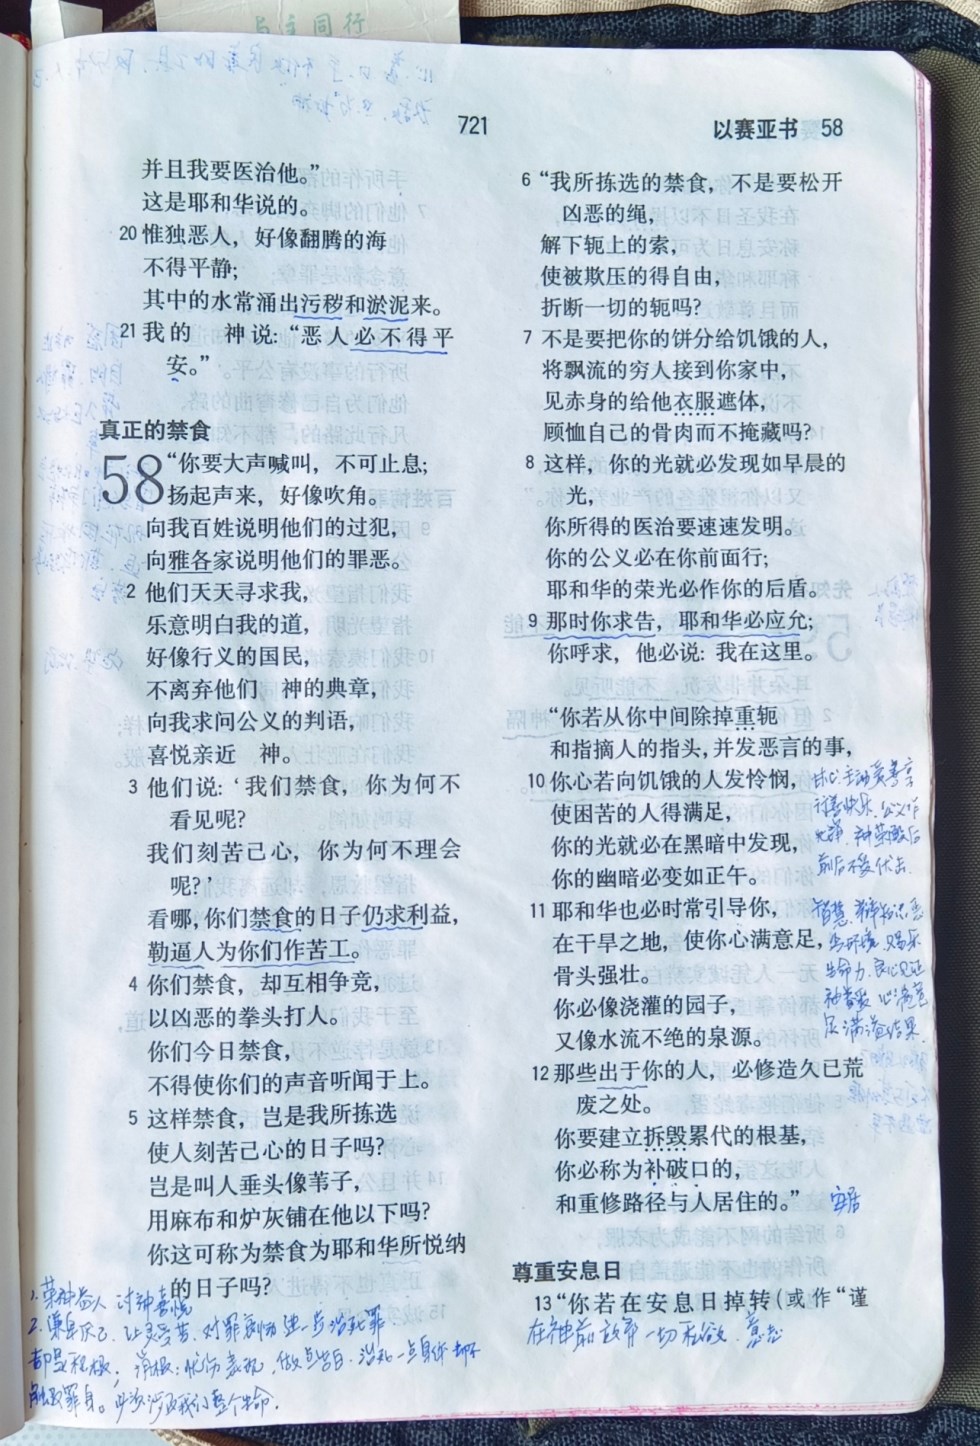 与主同行
721
以赛亚书 58
并且我要医治他。”
这是耶和华说的。
20 惟独恶人，好像翻腾的海
不得平静；
其中的水常涌出污秽和淤泥来。
21 我的　神说：“恶人必不得平
安。”
真正的禁食
58 “你要大声喊叫，不可止息；
扬起声来，好像吹角。
向我百姓说明他们的过犯，
向雅各家说明他们的罪恶。
2 他们天天寻求我，
乐意明白我的道，
好像行义的国民，
不离弃他们　神的典章，
向我求问公义的判语，
喜悦亲近　神。
3 他们说：‘我们禁食，你为何不
看见呢？
我们刻苦己心，你为何不理会
呢？’
看哪，你们禁食的日子仍求利益，
勒逼人为你们作苦工。
4 你们禁食，却互相争竞，
以凶恶的拳头打人。
你们今日禁食，
不得使你们的声音听闻于上。
5 这样禁食，岂是我所拣选
使人刻苦己心的日子吗？
岂是叫人垂头像苇子，
用麻布和炉灰铺在他以下吗？
你这可称为禁食为耶和华所悦纳
的日子吗？
6 “我所拣选的禁食，不是要松开
凶恶的绳，
解下轭上的索，
使被欺压的得自由，
折断一切的轭吗？
7 不是要把你的饼分给饥饿的人，
将飘流的穷人接到你家中，
见赤身的给他衣服遮体，
顾恤自己的骨肉而不掩藏吗？
8 这样，你的光就必发现如早晨的
光，
你所得的医治要速速发明。
你的公义必在你前面行；
耶和华的荣光必作你的后盾。
9 那时你求告，耶和华必应允；
你呼求，他必说：我在这里。
“你若从你中间除掉重轭
和指摘人的指头，并发恶言的事，
10 你心若向饥饿的人发怜悯，
使困苦的人得满足，
你的光就必在黑暗中发现，
你的幽暗必变如正午。
11 耶和华也必时常引导你，
在干旱之地，使你心满意足，
骨头强壮。
你必像浇灌的园子，
又像水流不绝的泉源。
12 那些出于你的人，必修造久已荒
废之处。
你要建立拆毁累代的根基，
你必称为补破口的，
和重修路径与人居住的。”
安居
尊重安息日
13 “你若在安息日掉转（或作“谨
在神前放弃一切私欲．意志
1. 荣神益人 讨神喜悦